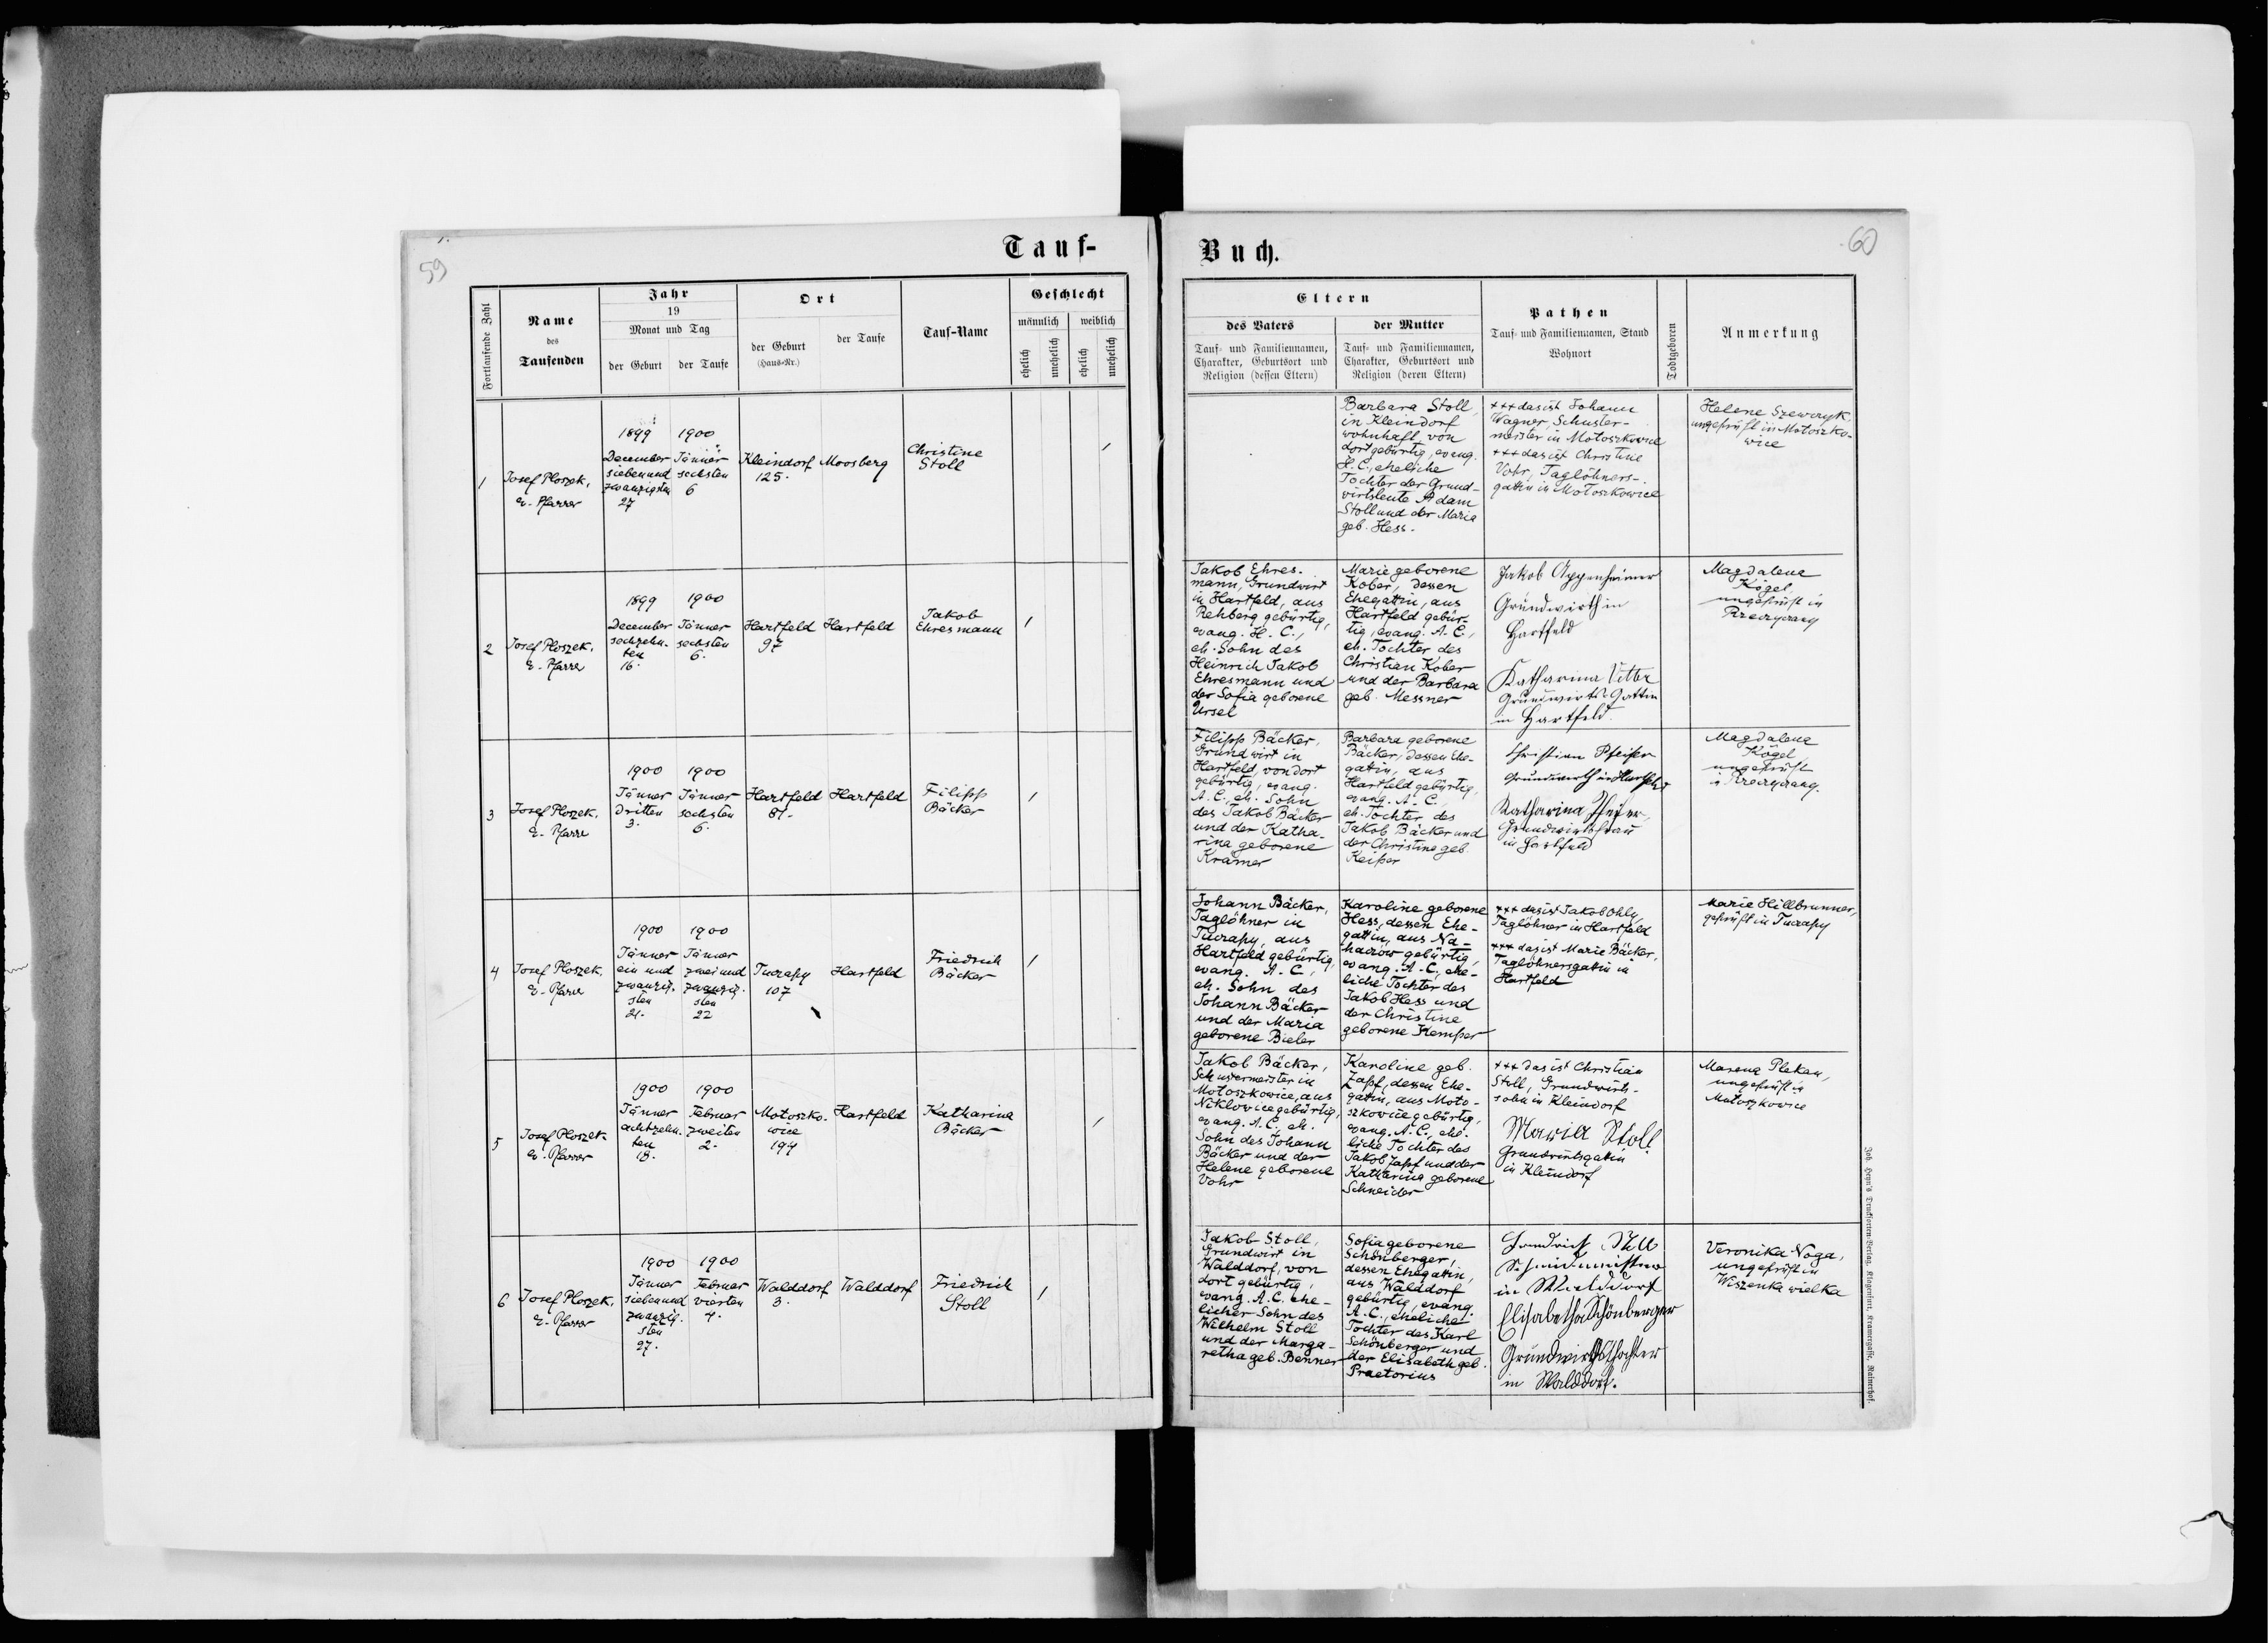 Tauf-
Buch.
59
60
Fortlaufende Zahl
Name
des
Taufenden
Jahr
19
Monat und Tag
der Geburt
der Taufe
Ort
der Geburt
(Haus-Nr.)
der Taufe
Tauf-Name
Geschlecht
männlich
weiblich
ehelich
unehelich
ehelich
unehelich
Eltern
des Vaters
Tauf- und Familiennamen,
Charakter, Geburtsort und
Religion (dessen Eltern)
der Mutter
Tauf- und Familiennamen,
Charakter, Geburtsort und
Religion (deren Eltern)
Pathen
Tauf- und Familiennamen, Stand
Wohnort
Todtgeboren
Anmerkung
1
Josef Ploszek,
ev. Pfarrer
1899
December
siebenund
zwanzigsten
27
1900
Jänner
sechsten
6
Kleindorf
125.
Moosberg
Christine
Stoll
/
Barbara Stoll,
in Kleindorf
wohnhaft, von
dort gebürtig, evang.
H.C., eheliche
Tochter der Grund-
wirtsleute Adam
Stoll und der Maria
geb. Hess.
+++ das ist Johann
Wagner, Schuster-
meister in Mołoszkowice
+++ das ist Christine
Vohr, Taglöhners-
gattin in Mołoszkowice
Helene Szewczyk,
ungeprüft in Mołoszko-
wice
2
Josef Ploszek,
ev. Pfarrer
1899
December
sechzehn-
ten
16.
1900
Jänner
sechsten
6.
Hartfeld
97
Hartfeld
Jakob
Ehresmann
/
Jakob Ehres-
mann, Grundwirt
in Hartfeld, aus
Rehberg gebürtig,
evang. H. C.,
eh. Sohn des
Heinrich Jakob
Ehresmann und
der Sofia geborene
Ursel
Marie geborene
Kober, dessen
Ehegattin, aus
Hartfeld gebür-
tig, evang. A. C.,
eh. Tochter des
Christian Kober
und der Barbara
geb. Messner
Jakob Oppenheimer
Grundwirth in
Hartfeld
Katharina Vetter
Grundwirts Gattin
in Hartfeld.
Magdalena
Kögel,
ungeprüft in
3
Josef Ploszek,
ev. Pfarrer
1900
Jänner
dritten
3.
1900
Jänner
sechsten
6.
Hartfeld
87.
Hartfeld
Filipp
Bäcker
/
Filipp Bäcker,
Grundwirt in
Hartfeld, von dort
gebürtig, evang.
A. C., eh. Sohn
des Jakob Bäcker
und der Katha-
rina geborene
Krämer
Barbara geborene
Bäcker, dessen Ehe-
gattin, aus
Hartfeld gebürtig,
evang. A. C.,
eh. Tochter des
Jakob Bäcker und
der Christine geb.
Keiper
Christian Pfeifer
Grundwirth in Hartfeld
Katharina Pfeifer,
Grundwirtsfrau
in Hartfeld
Magdalena
Kögel,
ungeprüft
4
Josef Ploszek,
ev. Pfarrer
1900
Jänner
ein und
zwanzig-
sten
21.
1900
Jänner
zwei und
zwanzig-
sten
22
Tuczapy
107
Hartfeld
Friedrich
Bäcker
/
Johann Bäcker,
Taglöhner in
Tuczapy, aus
Hartfeld gebürtig,
evang. A. C.,
eh. Sohn des
Johann Bäcker
und der Maria
geborene Bieler
Karoline geborene
Hess, dessen Ehe-
gattin, aus Na-
haczow gebürtig,
evang. A. C., ehe-
liche Tochter des
Jakob Hess und
der Christine
geborene Kemper
+++ das ist Jakob Ohly,
Taglöhner in Hartfeld
+++ das ist Marie Bäcker,
Taglöhnersgattin in
Hartfeld
Marie Hillbrunner,
geprüft in Tuczapy
5
Josef Ploszek
ev. Pfarrer
1900
Jänner
achtzehn-
ten
18.
1900
Februar
zweiten
2.
Mołoszko-
wice
194
Hartfeld
Katharina
Bäcker
/
Jakob Bäcker,
Schustermeister in
Mołoszkowice, aus
Niklowice gebürtig,
evang. A. C., eh.
Sohn des Johann
Bäcker und der
Helene geborene
Vohr
Karoline geb.
Zapf, dessen Ehe-
gattin, aus Moło-
szkowice gebürtig,
evang. A. C., ehe-
liche Tochter des
Jakob Zapf und der
Katharina geborene
Schneider
+++ das ist Christian
Stoll, Grundwirts-
sohn in Kleindorf
Maria Stoll
Grundwirtsgattin
in Kleindorf
ungeprüft in
Mołoszkowice
6
Josef Ploszek,
ev. Pfarrer
1900
Jänner
siebenund
zwanzig-
sten
27.
1900
Februar
vierten
4.
Walddorf
3.
Walddorf
Friedrich
Stoll
/
Jakob Stoll,
Grundwirt in
Walddorf, von
dort gebürtig,
evang. A. C. ehe-
licher Sohn des
Wilhelm Stoll
und der Marga-
retha geb. Benner
Sofia geborene
Schönberger,
dessen Ehegattin,
aus Walddorf
gebürtig, evang.
A. C., eheliche
Tochter des Karl
Schönberger und
der Elisabeth geb.
Praetorius
Schmidmeister
in Walddorf
Elisabetha Schönberger
Grundwirtstochter
in Walddorf.
Veronika Noga,
ungeprüft in
Wiszenka wielka
Joh. Heyn's Drucksorten-Verlag, Klagenfurt, Kramergasse, Rainerhof.